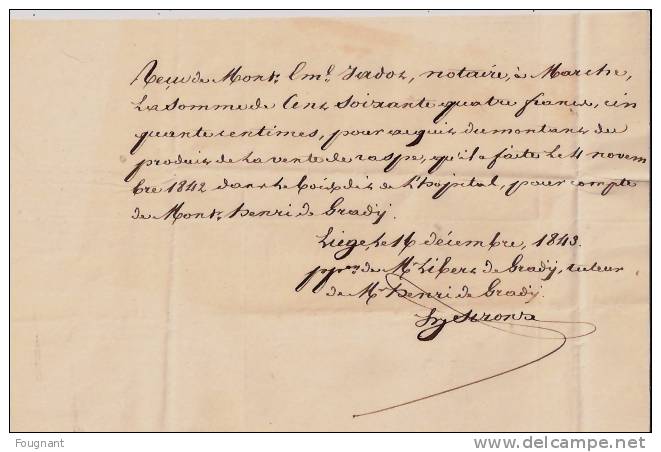 Reçu de Monsr. Eml. Jadot, notaire, à Marche,
la somme de Cent Soixante quatre francs, cin
quante centimes, pour acquit du montant du
produit de la vente de raspe, qu'il a faite le 4 novem
bre 1842 dans le bois dit de l'hôpital, pour compte
de Monsr. henri de Grady.
Liège, le 16 décembre, 1843.
de Mr. Libert de Grady, tuteur
de Mr. henri de Grady.
Fougnant
delcampe.net